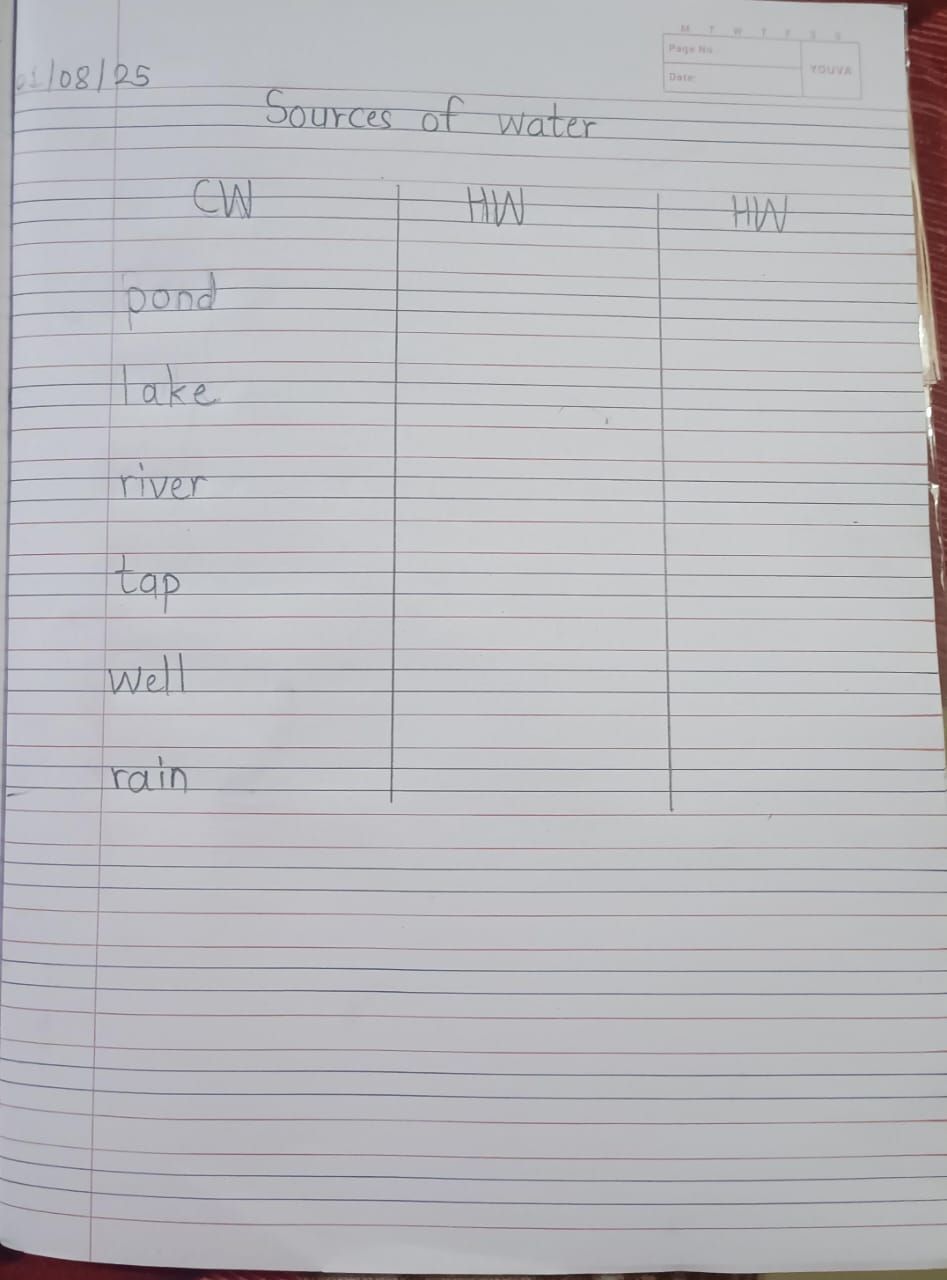 M T W T F S S
Page No.
Date:
YOUVA
01/08/25
Sources of water
CW HW HW
pond
lake
river
tap
well
rain